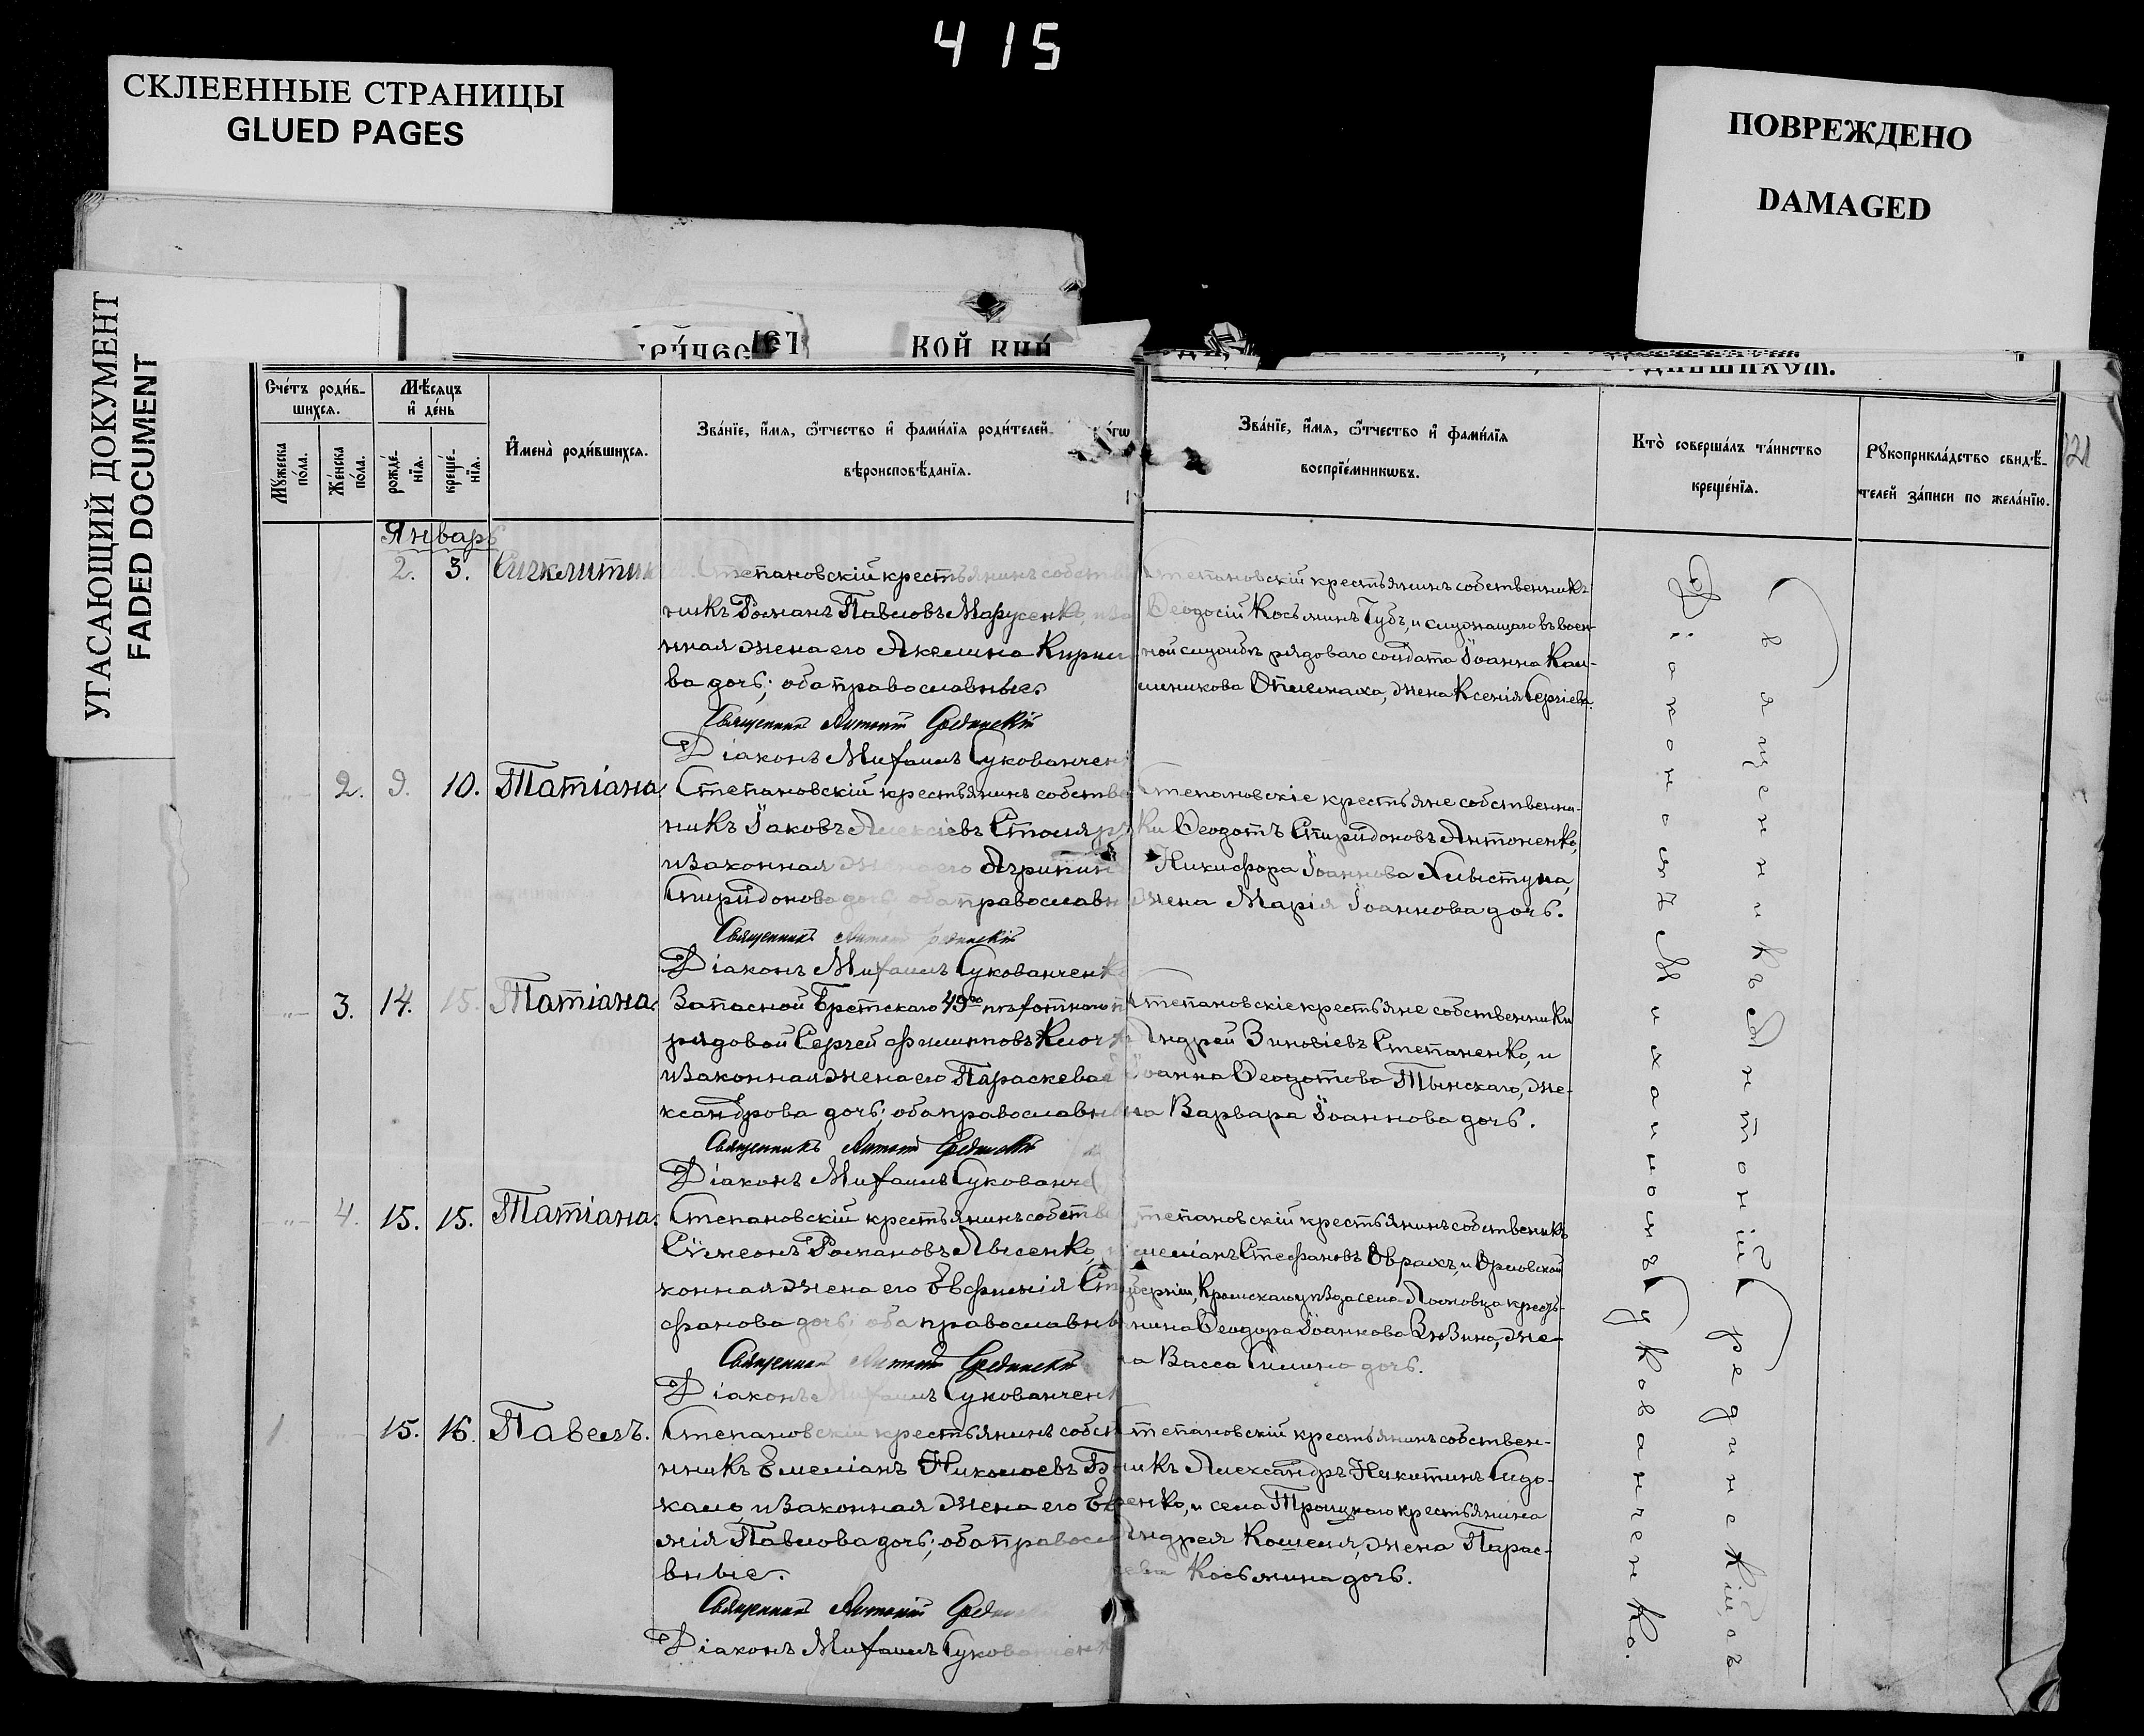 415
СКЛЕЕННЫЕ СТРАНИЦЫ
GLUED PAGES
ПОВРЕЖДЕНО
DAMAGED
УГАСАЮЩИЙ ДОКУМЕНТ
FADED DOCUMENT
Счетъ родив-
шихся.
Мѣсяцъ
и день
Мужеска
пола.
Женска
пола.
рожде-
нія.
креще-
нія.
Имена родившихся.
Званіе, имя, отчество и фамилія родителей
вѣроисповѣданія.
Званіе, имя, отчество и фамилія
воспріемниковъ.
Кто совершалъ таинство
крещенія.
Рукоприкладство свидѣ-
телей записи по желанію.
121
Январь
2. 3.
Степановскій крестьянинъ собств
никъ Романъ Павловъ Марусенко,
нная жена его Акелина Кирил
ва дочь; оба православные.
Священникъ Антоній Срединскій
Діаконъ Михаилъ Сукованчен
Степановскій крестьянинъ собственникъ
Ѳеодосій Косьминъ Губъ, и служащаго въ воен-
ной службѣ рядоваго солдата Іоанна
жена Ксенія Сергіева.
2. 9. 10. Татіана.
Степановскій крестьянинъ собстве
никъ Іаковъ Алексіевъ Столяръ
и законная жена его Агрипин
Спиридонова дочь; оба православн
Священникъ Антоній Срединскій
Діаконъ Михаилъ Сукованченко
Степановскіе крестьяне собственни-
ки Ѳеодотъ Спиридоновъ Антоненко,
Никифора Іоаннова Хлыстуна,
жена Марія Іоаннова дочь.
3. 14. 15. Татіана.
Запасной Брестскаго 49го пѣхотнаго п
рядовой Сергей Филипповъ Клоч
и законная жена его Параскева
ксандрова дочь; оба православн
Священникъ Антоній Срединскій
Діаконъ Михаилъ Сукованч
Степановскіе крестьяне собственники
Андрей Зиновіевъ Степаненко, и
Іоанна Ѳеодотова Тынскаго, же-
на Варвара Іоаннова дочь.
4. 15. 15. Татіана.
Степановскій крестьянинъ собстве
Сѵмеонъ Романовъ Лысенко,
конная жена его Евфимія Сте
фанова дочь; оба православн
Священникъ Антоній Срединскій
Діаконъ Михаилъ Сукованчен
тепановскій крестьянинъ собственикъ
меліанъ Стефановъ и Орловской
губерніи, Кромскаго уѣзда села кресть-
нина Ѳеодора Іоаннова же-
на Васса дочь.
1 15. 16. Павелъ.
Степановскій крестьянинъ собст
нникъ Емеліанъ Николаевъ
и законная жена его Ев
мія Павлова дочь; оба правосла
вные.
Священникъ Антоній Средин
Діаконъ Михаилъ Сукованченк
тепановскій крестьянинъ собствен-
никъ Александръ Никитинъ Сидо-
ренко, и села Троицкаго крестьянина
Андрея Кошеля, жена Парас-
ева Косьмина дочь.
Священникъ Антоній Срединскій съ
Діакономъ Михаиломъ Сукованченко.